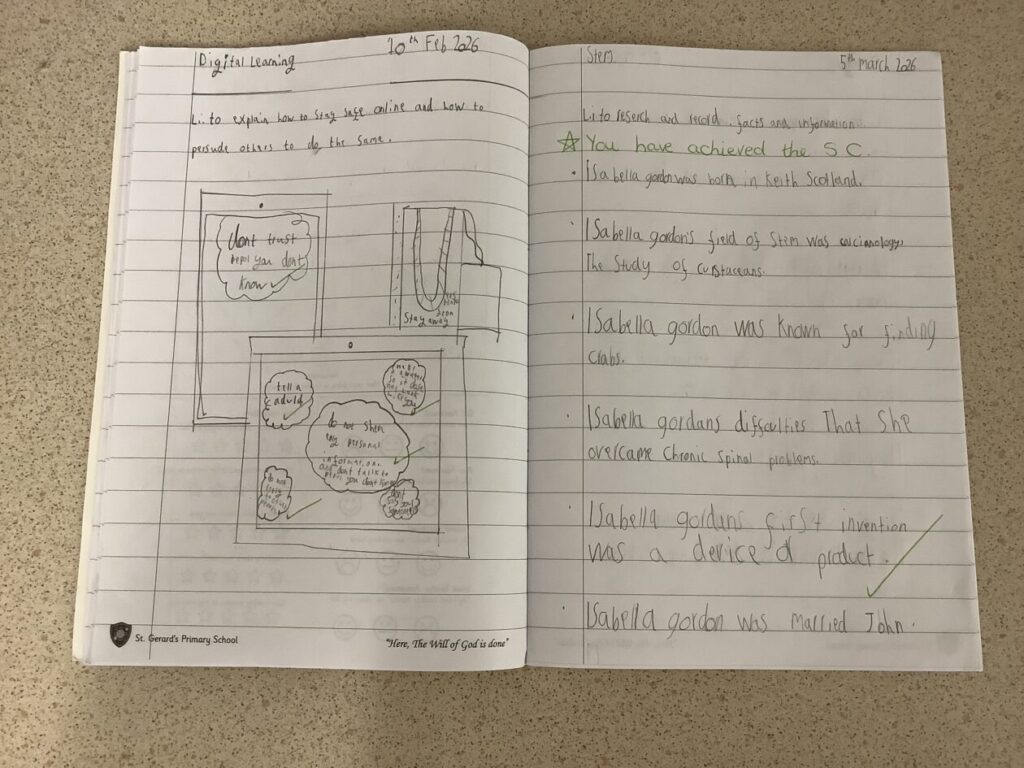 Digital Learning
10th Feb 2026
Li. to explain how to stay safe online and how to
persude others to do the same.
dont trust
you dont
know
Stay away
tell a
aduld
do not
personal
and dont talk to
you dont
do not
dont
Stem
5th march 2026
Li to reserch and record facts and information
You have achieved the S C.
Isabella gordon was born in Keith Scotland.
Isabella gordon's field of Stem was
The Study of
Isabella gordon was known for finding
crabs.
Isabella gordans difficulties That She
overcame chronic Spinal problems.
Isabella gordans first invention
was a device product.
Isabella gordon was married John.
St. Gerard's Primary School
"Here, The Will of God is done"